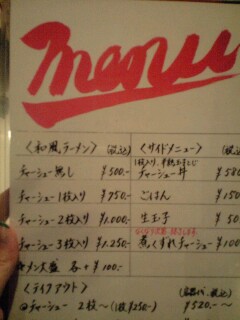 menu
〈和風ラーメン〉 (税込)
チャーシュー無し ¥500-
チャーシュー1枚入り ¥750-
チャーシュー2枚入り ¥1,000-
チャーシュー3枚入り ¥1,250-
☆メン大盛 各+¥100-
〈テイクアウト〉
◎チャーシュー 2枚〜(1枚¥250-) ¥520-〜
〈サイドメニュー〉 (税込)
チャーシュー丼 ¥580
ごはん ¥150
生玉子 ¥50
煮くずれチャーシュー ¥100